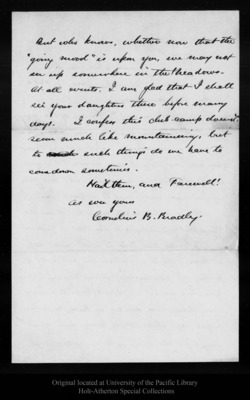 But who knows, whether now that the
"going mood" is upon you, we may not
see you somewhere in the Meadows.
At all events, I am glad that I shall
see your daughters there before many
days. I confess this club camp doesn't
seem much like mountaineering, but
to such things do we have to
come down sometimes.
Hail then, and Farewell!
as ever yours
Cornelius B. Bradley.
Original located at University of the Pacific Library
Holt-Atherton Special Collections